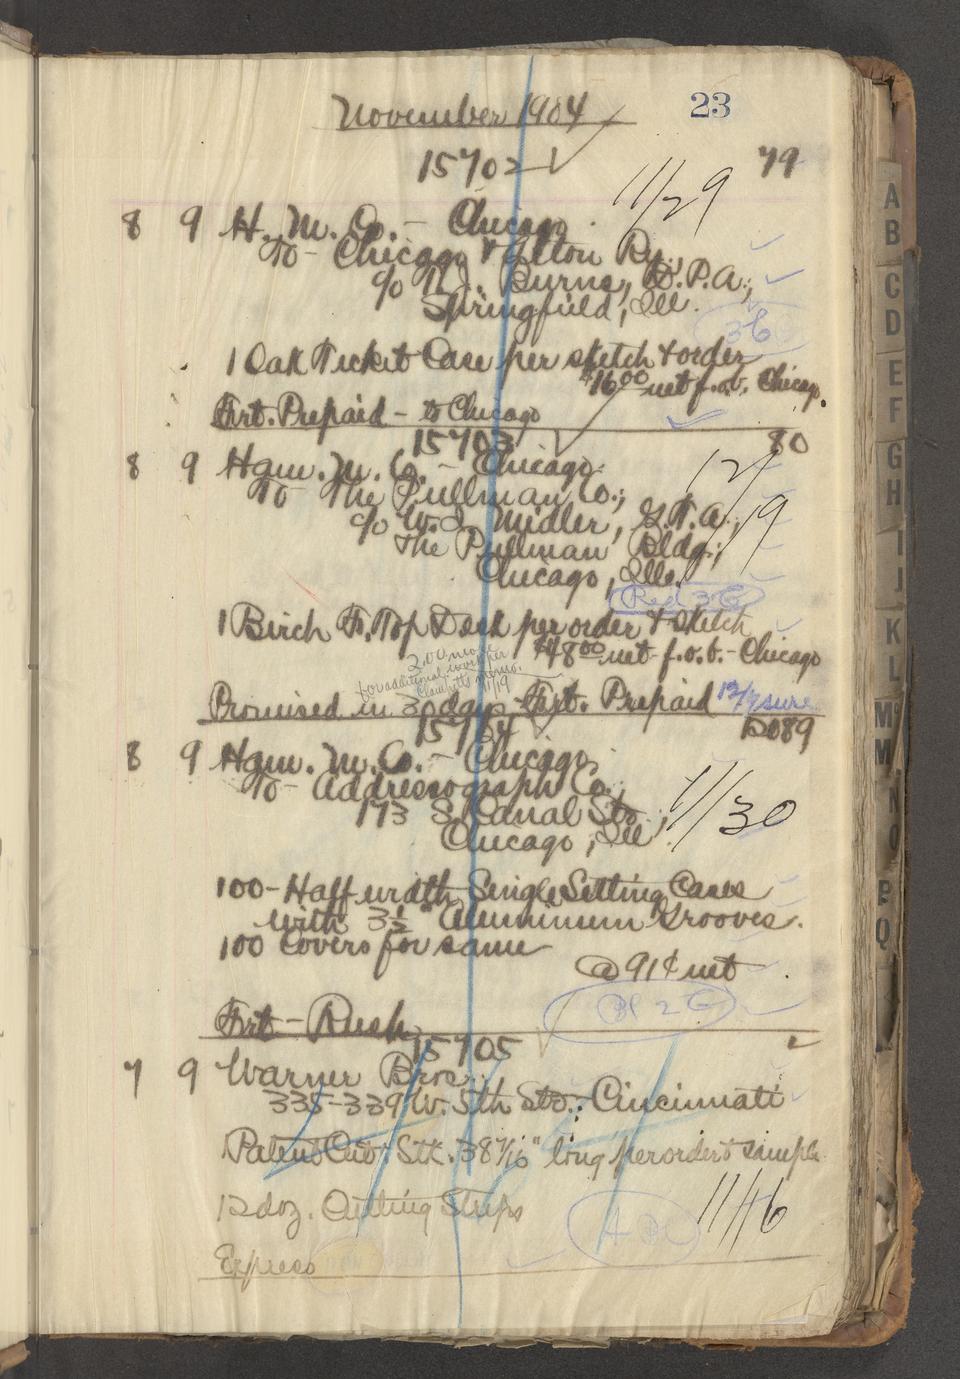 November 1904 23
15702 79
11/29
8 9 H. M. Co. - Chicago
To - Chicago & Alton Ry.,
c/o Burns, D.P.A.,
Springfield, Ill.
36
1 Oak Ticket Case per sketch & order
$16.00 net f.o.b. Chicago.
Frt. Prepaid - to Chicago
15703 80
8 9 Ham. M. Co. - Chicago
12/19
To - The Pullman Co.,
c/o W.S. Midler, G.T.A.,
The Pullman Bldg.,
Chicago, Ills.
Red 36
1 Birch F. Top Desk per order & sketch
$48.00 net f.o.b. - Chicago
2.00 more
for additional work per
memo. 11/19
Promised in 30 days - Frt. Prepaid 12/7 sure
15704 12089
8 9 Ham. M. Co. - Chicago
To - Addressograph Co.,
173 S. Canal Sts.,
11/30
Chicago, Ill.
100 - Half width Single Setting Cases
with 3½" Aluminum Grooves.
100 Covers for same
@ 91¢ net
Bl 26
Frt - Rush
15705
7 9 Warner Bros.
335-339 W. 5th Sts.: Cincinnati
1 Patent Cut. Stk. 38 7/16" long per order & sample
12 doz. Cutting Strips
11/16
Express